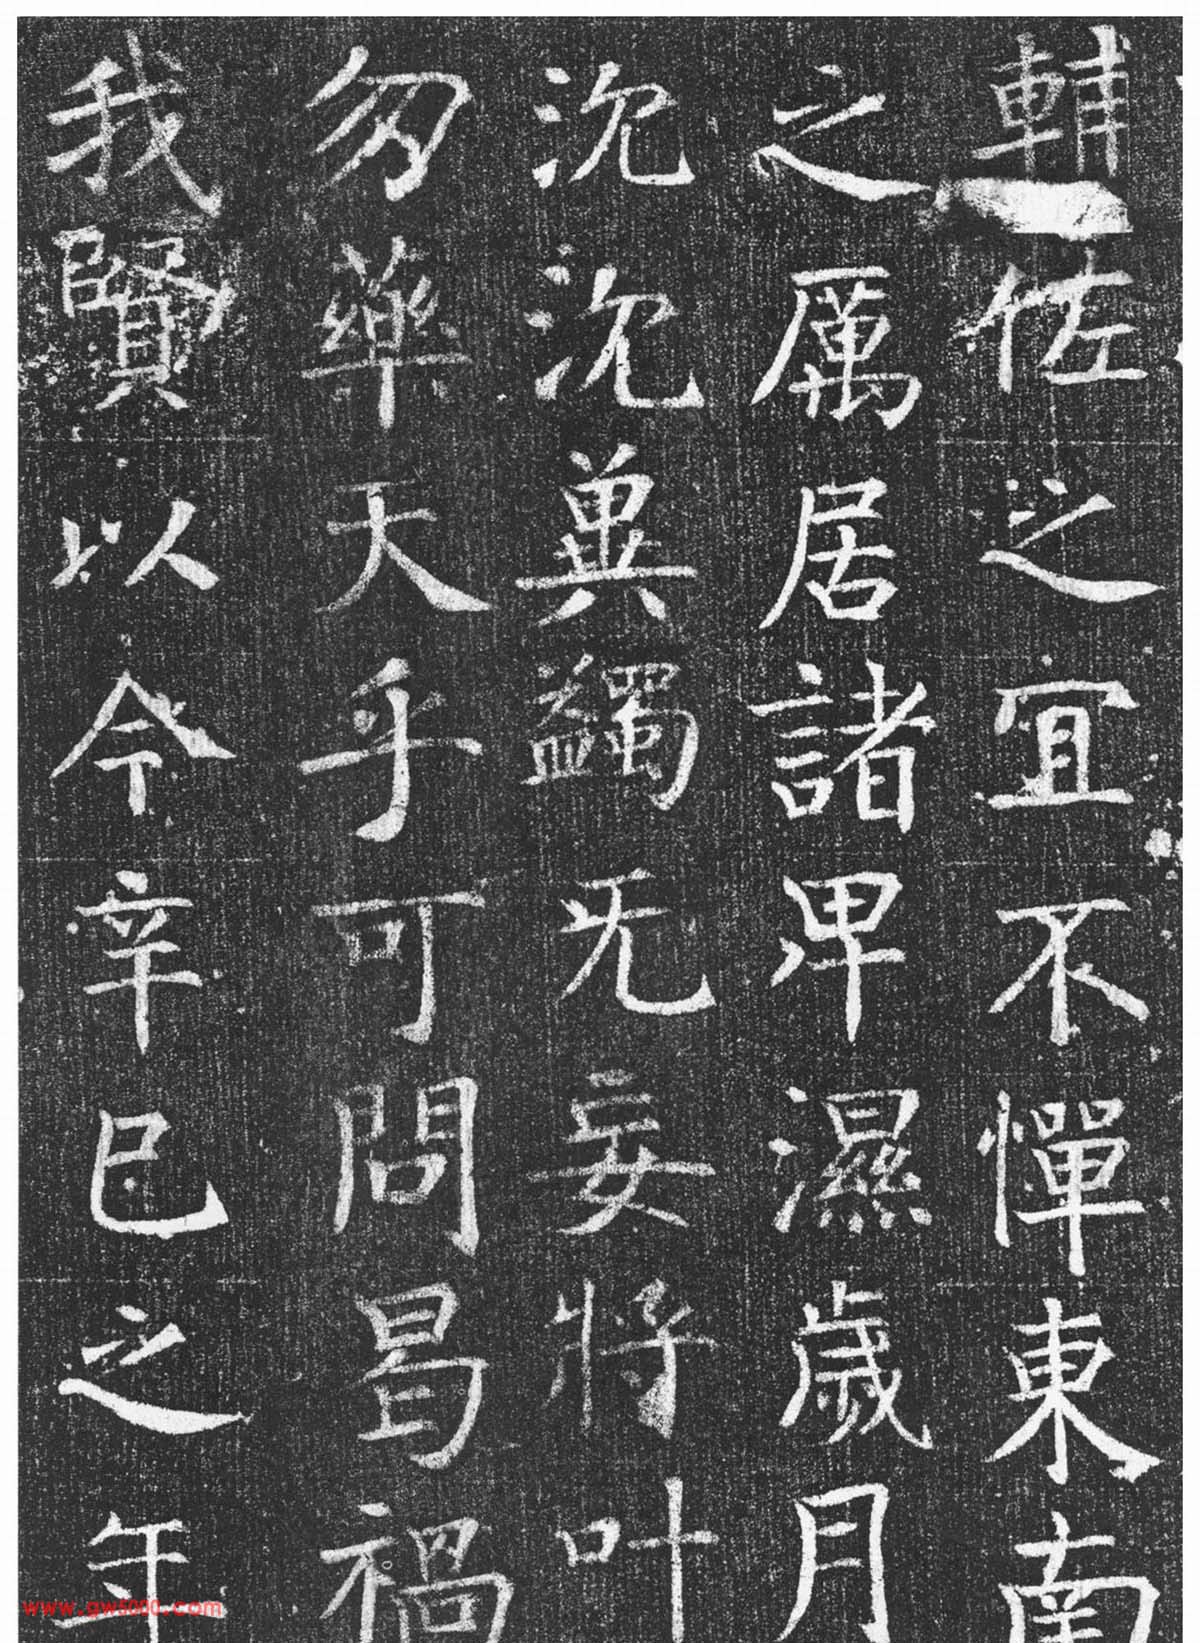 輔佐之宜不憚東南
之厲居諸卑濕歲月
沉沉㢲蠲旡妄將叶
勿藥天乎可問曷禍
我賢以今辛巳之年
www.gw5000.com